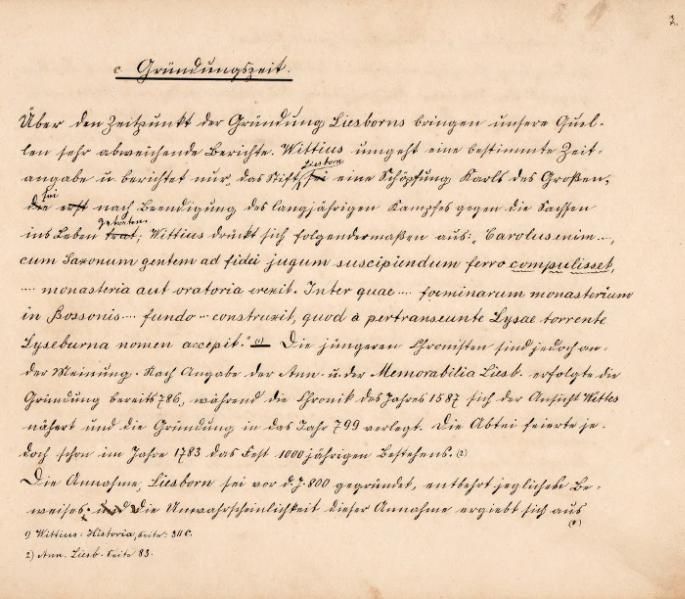 2.
c Gründungszeit.
Über den Zeitpunkt der Gründung Liesborns bringen unsere Quel-
len sehr abweichende Berichte. Wittius umgeht eine bestimmte Zeit-
Liesborn
angabe u berichtet nur, das Stift, sei eine Schöpfung Karls des Großen,
sei
die erst nach Beendigung des langjährigen Kampfes gegen die Sachsen
getreten
ins Leben trat; Wittius drückt sich folgendermaßen aus: „Carolus enim ...,
cum Saxonum gentem ad fidei jugum suscipiendum ferro compulisset,
.... monasteria aut oratoria erexit. Inter quae .... foeminarum monasterium
in Bossonis .... fundo .. construxit, quod à pertranseunte Lysae torrente
Lyseburna nomen accepit." 1) Die jüngeren Chronisten sind jedoch an-
der Meinung. Nach Angabe der Ann. u. der Memorabilia Liesb. erfolgte die
Gründung bereits 786, während die Chronik des Jahres 1587 sich der Ansicht Wittes
nähert und die Gründung in das Jahr 799 verlegt. Die Abtei feierte je-
doch schon im Jahre 1783 das Fest 1000 jährigen Bestehens. (2)
Die Annahme, Liesborn sei vor d. J. 800 gegründet, entbehrt jeglichen Be-
weises. und Die Unwahrscheinlichkeit dieser Annahme ergiebt sich aus
1) Wittius: Historia, Seite: 311 C.
2) Ann. Liesb. Seite 83.